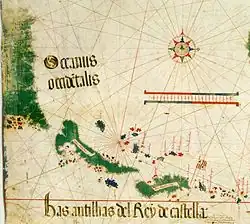 Oceanus
occidētalis
has antilhas del Rey de castella